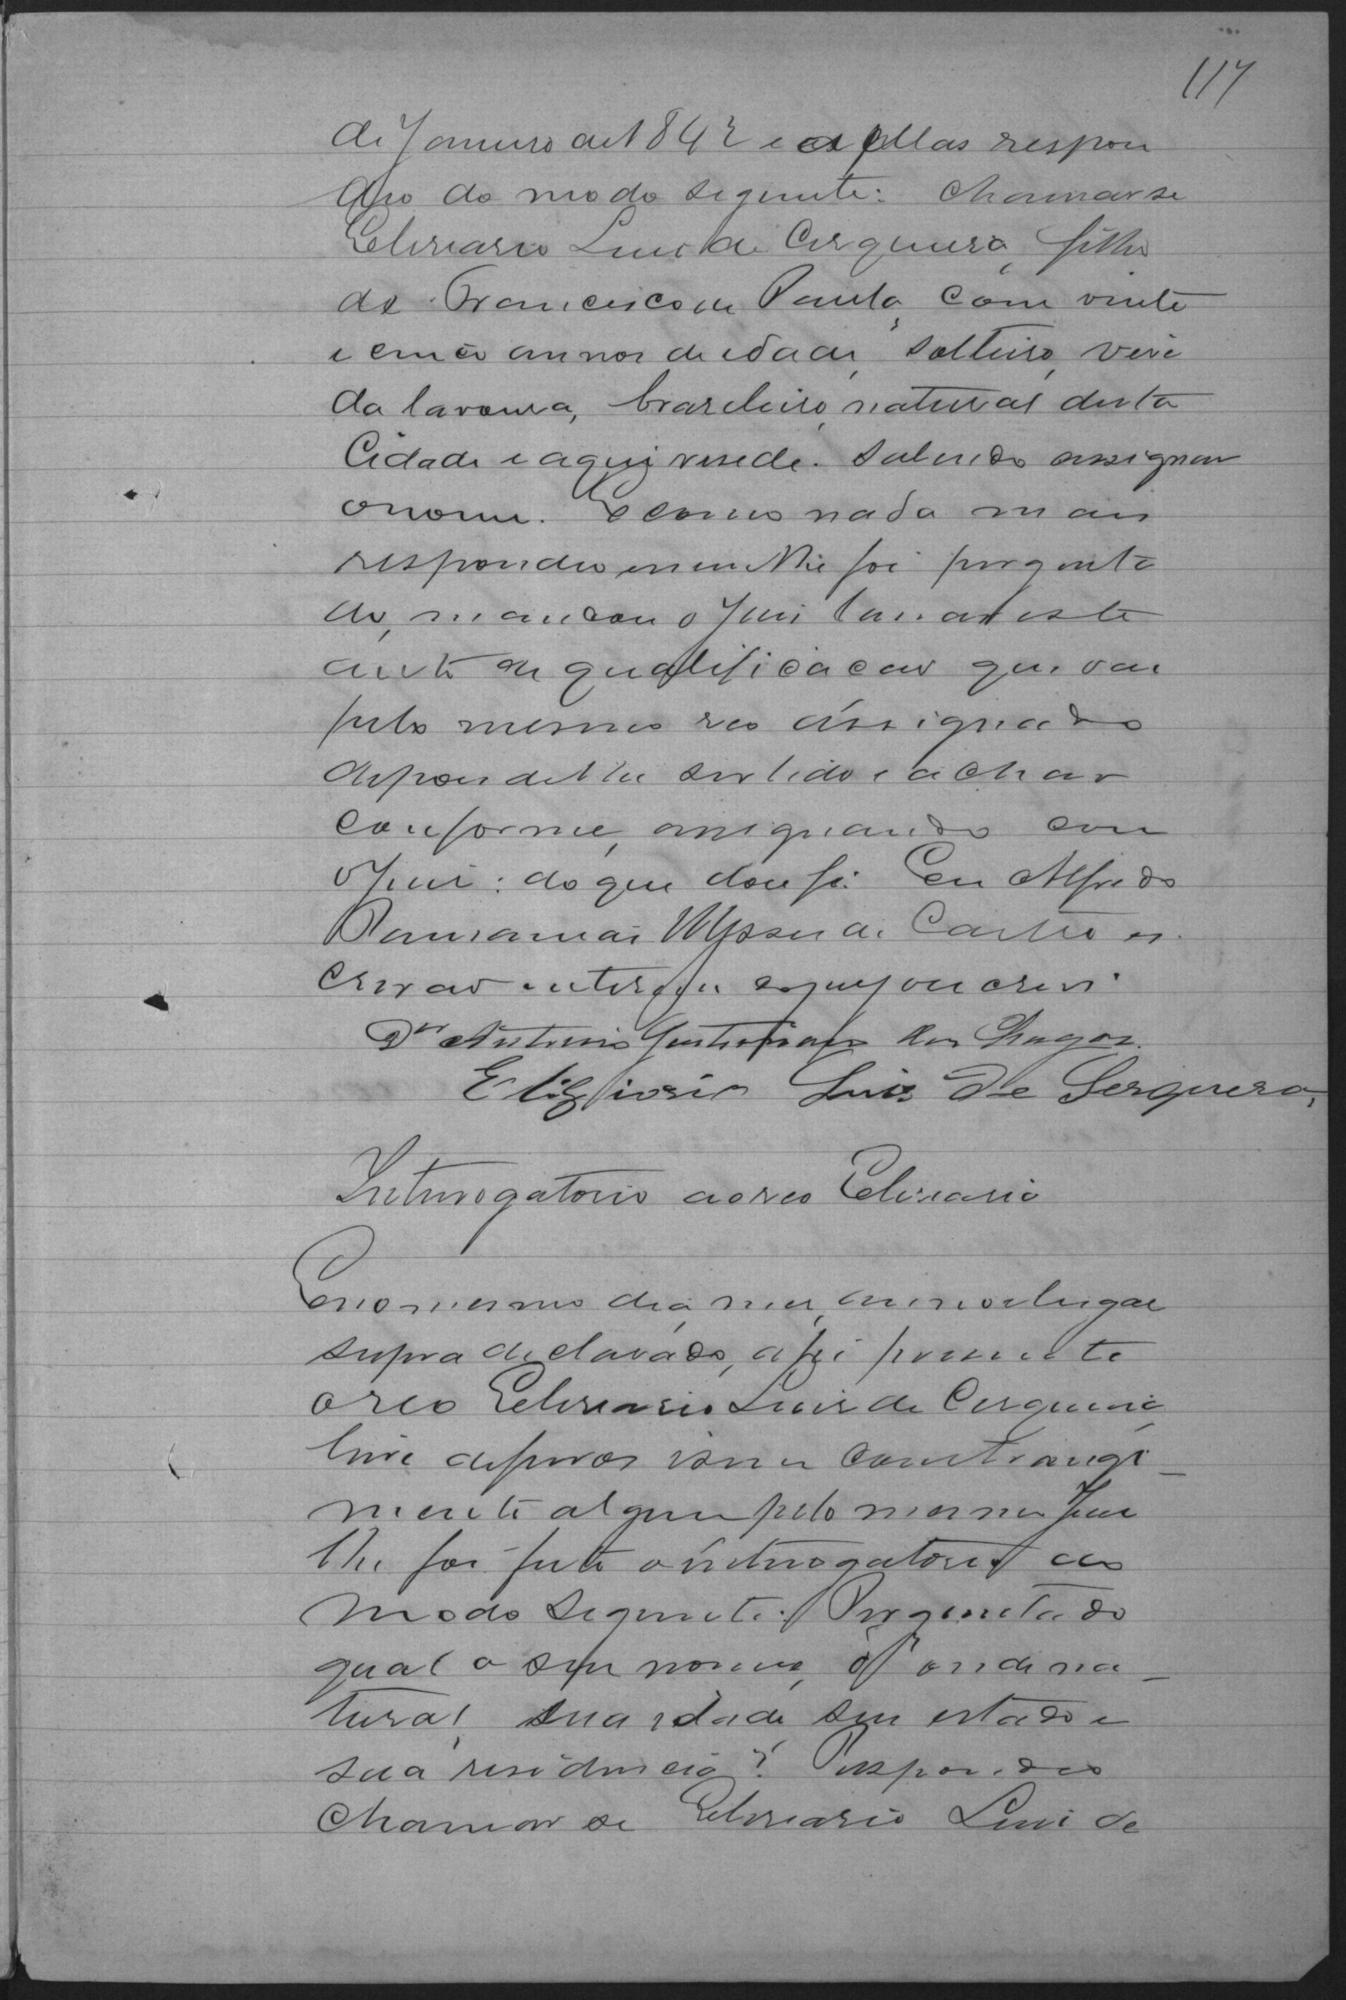 117
de Janeiro de 1842 e a ellas respon
deo do modo seguinte: Chamar se
Elisiario Luis de Cerqueira, filho
de Francisco de Paula, com vinte
e cinco annos de idade, solteiro, vive
da lavoura, brasileiro, natural desta
Cidade e aqui reside. Sabendo assignar
o nome. E como nada mais
respondeo nem lhe foi pergunta
do, mandou o Juiz lavrar este
auto de qualificacao que vai
pelo mesmo reo assignado
depois de lhe ser lido e achar
conforme, assignando com
o Juiz: do que dou fé. Eu Alfredo
Ulysses de Castro es
crivao interino
Dr Antonio dos Chagas.
Luis de Serquera,
Interrogatorio ao reo Elisiario
E no mesmo dia, mez, anno e lugar
supra declarado, ahi presente
o reo Elisiario Luis de Cerqueira,
livre de ferros e sem constrangi
mento algum pelo mesmo Juiz
lhe foi feito o interrogatorio do
modo seguinte: Perguntado
qual o seu nome, d'onde na
tural, sua idade, seu estado e
sua residencia? Respondeo
chamar se Elisiario Luis de